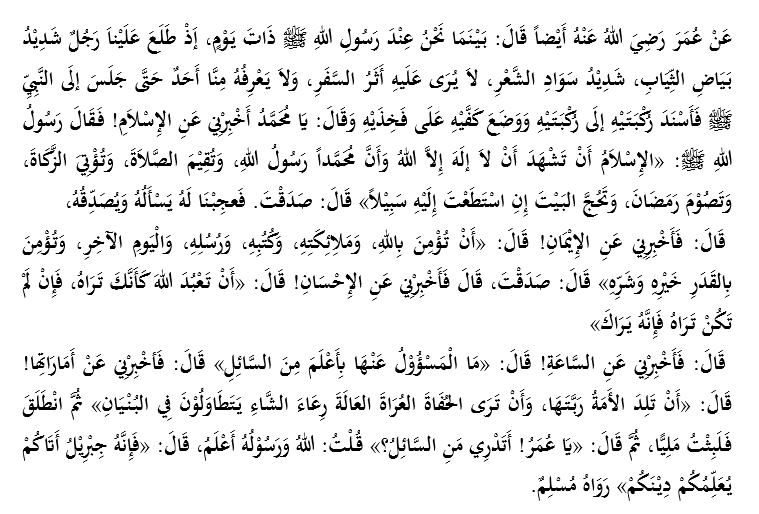 عَنْ عُمَرَ رَضِيَ اللهُ عَنْهُ أَيْضاً قَالَ: بَيْنَمَا نَحْنُ عِنْدَ رَسُولِ اللهِ ﷺ ذَاتَ يَوْمٍ، إِذْ طَلَعَ عَلَيْناَ رَجُلٌ شَدِيْدُ
بَيَاضِ الثِّيَابِ، شَدِيْدُ سَوَادِ الشَّعْرِ، لاَ يُرَى عَلَيهِ أَثَرُ السَّفَرِ، وَلاَ يَعْرِفُهُ مِنَّا أَحَدٌ حَتَّى جَلَسَ إلَى النَّبِيِّ
ﷺ فَأَسْنَدَ رُكْبَتَيْهِ إِلَى رُكْبَتَيْهِ وَوَضَعَ كَفَّيْهِ عَلَى فَخِذَيْهِ وَقَالَ: يَا مُحَمَّدُ أَخْبِرْنِي عَنِ الإِسْلاَمِ! فَقَالَ رَسُولُ
اللهِ ﷺ: «الإِسْلاَمُ أَنْ تَشْهَدَ أَنْ لاَ إلَهَ إِلاَّ اللهُ وَأَنَّ مُحَمَّداً رَسُولُ اللهِ، وَتُقِيْمَ الصَّلاَةَ، وَتُؤْتِيَ الزَّكَاةَ،
وَتَصُوْمَ رَمَضَانَ، وَتَحُجَّ البَيْتَ إِنِ اسْتَطَعْتَ إِلَيْهِ سَبِيْلاً» قَالَ: صَدَقْتَ. فَعجِبْنَا لَهُ يَسْأَلُهُ وَيُصَدِّقُهُ،
قَالَ: فَأَخْبِرْنِي عَنِ الإِيْمَانِ! قَالَ: «أَنْ تُؤْمِنَ بِاللهِ، وَمَلاِئِكَتِهِ، وَكُتُبِهِ، وَرُسُلِهِ، وَالْيَومِ الآخِرِ، وَتُؤْمِنَ
بِالقَدَرِ خَيْرِهِ وَشَرِّهِ» قَالَ: صَدَقْتَ، قَالَ فَأَخْبِرْنِي عَنِ الإِحْسَانِ! قَالَ: «أَنْ تَعْبُدَ اللهَ كَأَنَّكَ تَرَاهُ، فَإِنْ لَمْ
تَكُنْ تَرَاهُ فَإِنَّهُ يَرَاكَ»
قَالَ: فَأَخْبِرْنِي عَنِ السَّاعَةِ! قَالَ: «مَا الْمَسْؤُوْلُ عَنْهَا بِأَعْلَمَ مِنَ السَّائِلِ» قَالَ: فَأخْبِرْنِي عَنْ أَمَارَاتِهَا!
قَالَ: «أَنْ تَلِدَ الأَمَةُ رَبَّتَهَا، وَأَنْ تَرَى الحُفَاةَ العُرَاةَ العَالَةَ رِعَاءَ الشَّاءِ يَتَطَاوَلُوْنَ فِي البُنْيَانِ» ثُمَّ انْطَلَقَ
فَلَبِثْتُ مَلِيًّا، ثُمَّ قَالَ: «يَا عُمَرُ! أَتَدْرِي مَنِ السَّائِلُ؟» قُلْتُ: اللهُ وَرَسُوْلُهُ أَعْلَمُ، قَالَ: «فَإِنَّهُ جِبْرِيْلُ أَتَاكُمْ
يُعَلِّمُكُمْ دِيْنَكُمْ» رَوَاهُ مُسْلِمٌ.